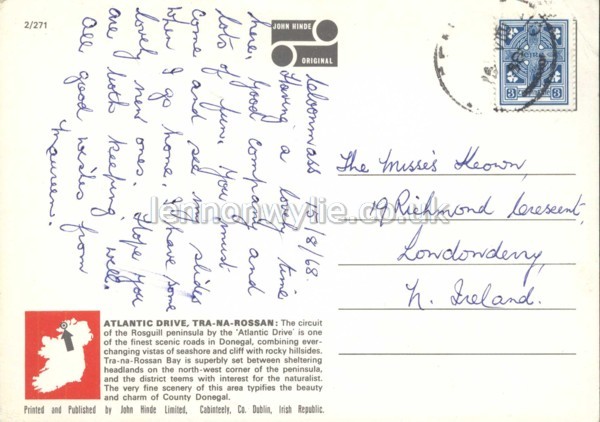 2/271
JOHN HINDE
ORIGINAL
3
15/8/68.
Having a lovely time
here. Good company and
lots of fun. You must
come and see my slides
when I go home. I have some
lovely new ones. Hope you
are both keeping well.
All good wishes from
Maureen.
The Misses Keown,
19 Richmond Crescent,
Londonderry,
N. Ireland.
jennonwylie.co.uk
ATLANTIC DRIVE, TRA-NA-ROSSAN: The circuit
of the Rosguill peninsula by the 'Atlantic Drive' is one
of the finest scenic roads in Donegal, combining ever-
changing vistas of seashore and cliff with rocky hillsides.
Tra-na-Rossan Bay is superbly set between sheltering
headlands on the north-west corner of the peninsula,
and the district teems with interest for the naturalist.
The very fine scenery of this area typifies the beauty
and charm of County Donegal.
Printed and Published by John Hinde Limited, Cabinteely, Co. Dublin, Irish Republic.